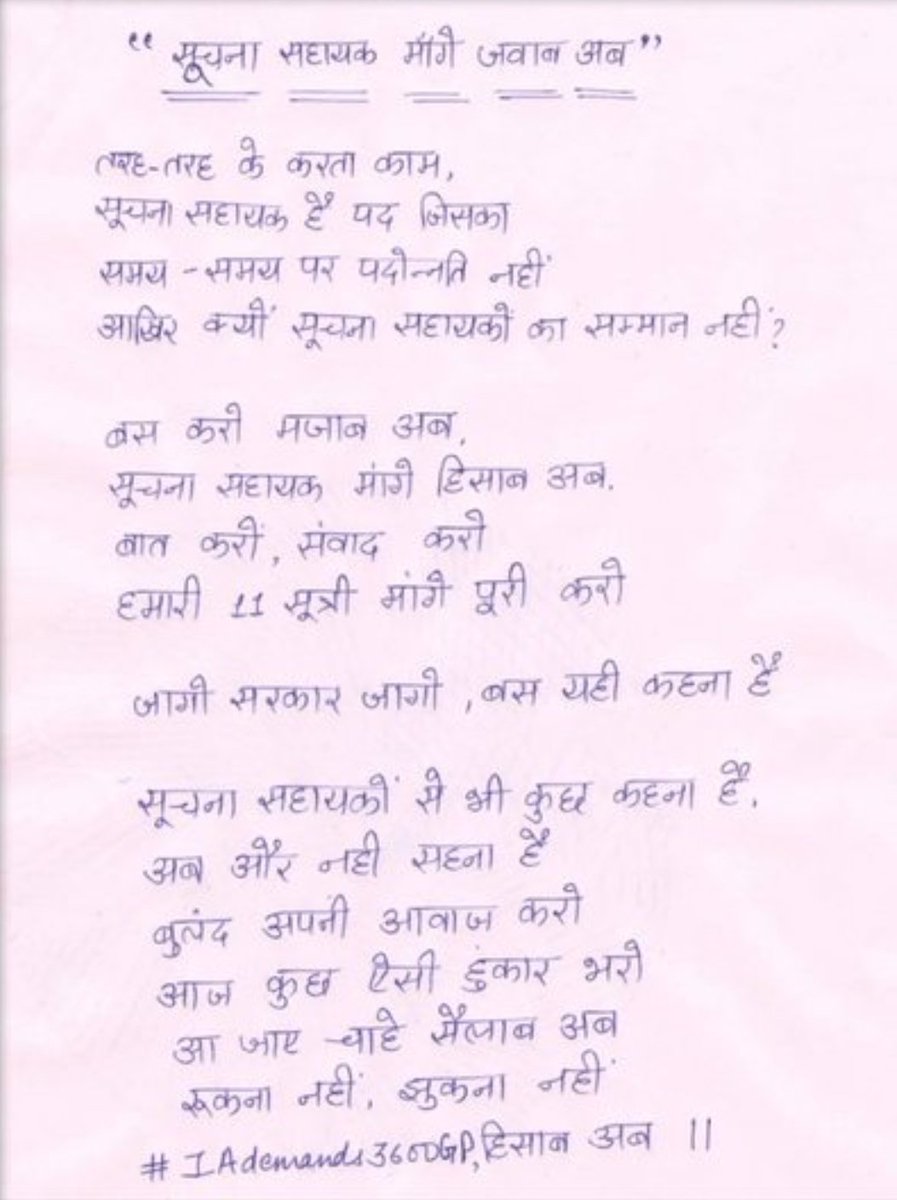 “सूचना सहायक माँगे जवाब अब”
तरह-तरह के करता काम,
सूचना सहायक है पद जिसका
समय-समय पर पदोन्नति नहीं
आखिर क्यों सूचना सहायकों का सम्मान नहीं?
बस करो मजाब अब,
सूचना सहायक मांगे हिसाब अब.
बात करों, संवाद करो
हमारी 11 सूत्री मांगे पूरी करो
जागो सरकार जागो, बस यही कहना है
सूचना सहायकों से भी कुछ कहना है,
अब और नही सहना है
बुलंद अपनी आवाज करो
आज कुछ ऐसी हुंकार भरो
आ जाए चाहे सैलाब अब
रूकना नहीं, झुकना नहीं
# IAdemands3600GP, हिसाब अब ||